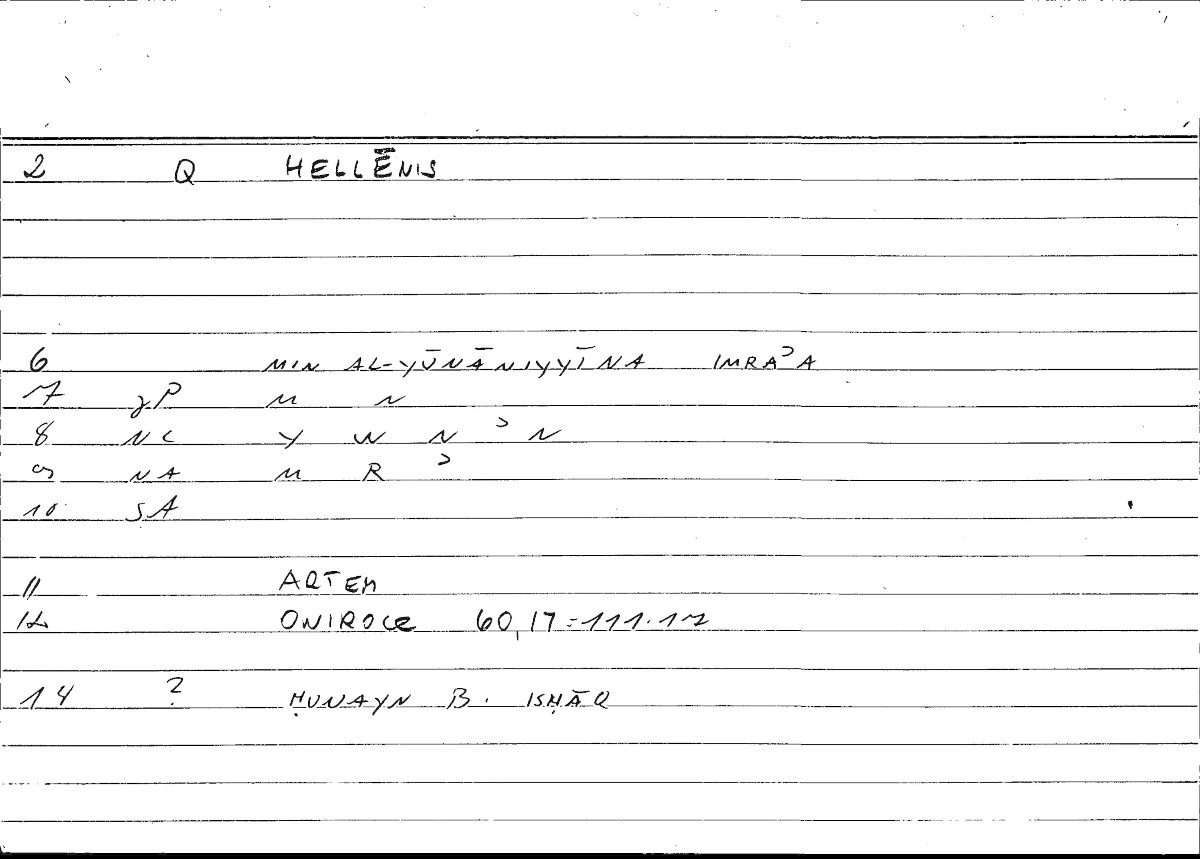 2 Q HELLĒNIS
6 MIN AL-YŪNĀNIYYĪNA IMRAʾA
7 gP M N
8 NC Y W N ʾ N
9 NA M R ʾ
10 SA
11 ARTEM
12 ONIROCR 60,17=111.17
14 ? ḤUNAYN B. ISḤĀQ